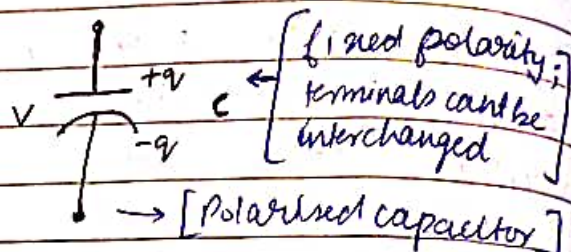 +q
V
C ← [fixed polarity;
terminals cant be
interchanged]
-q
→ [Polarised capacitor]